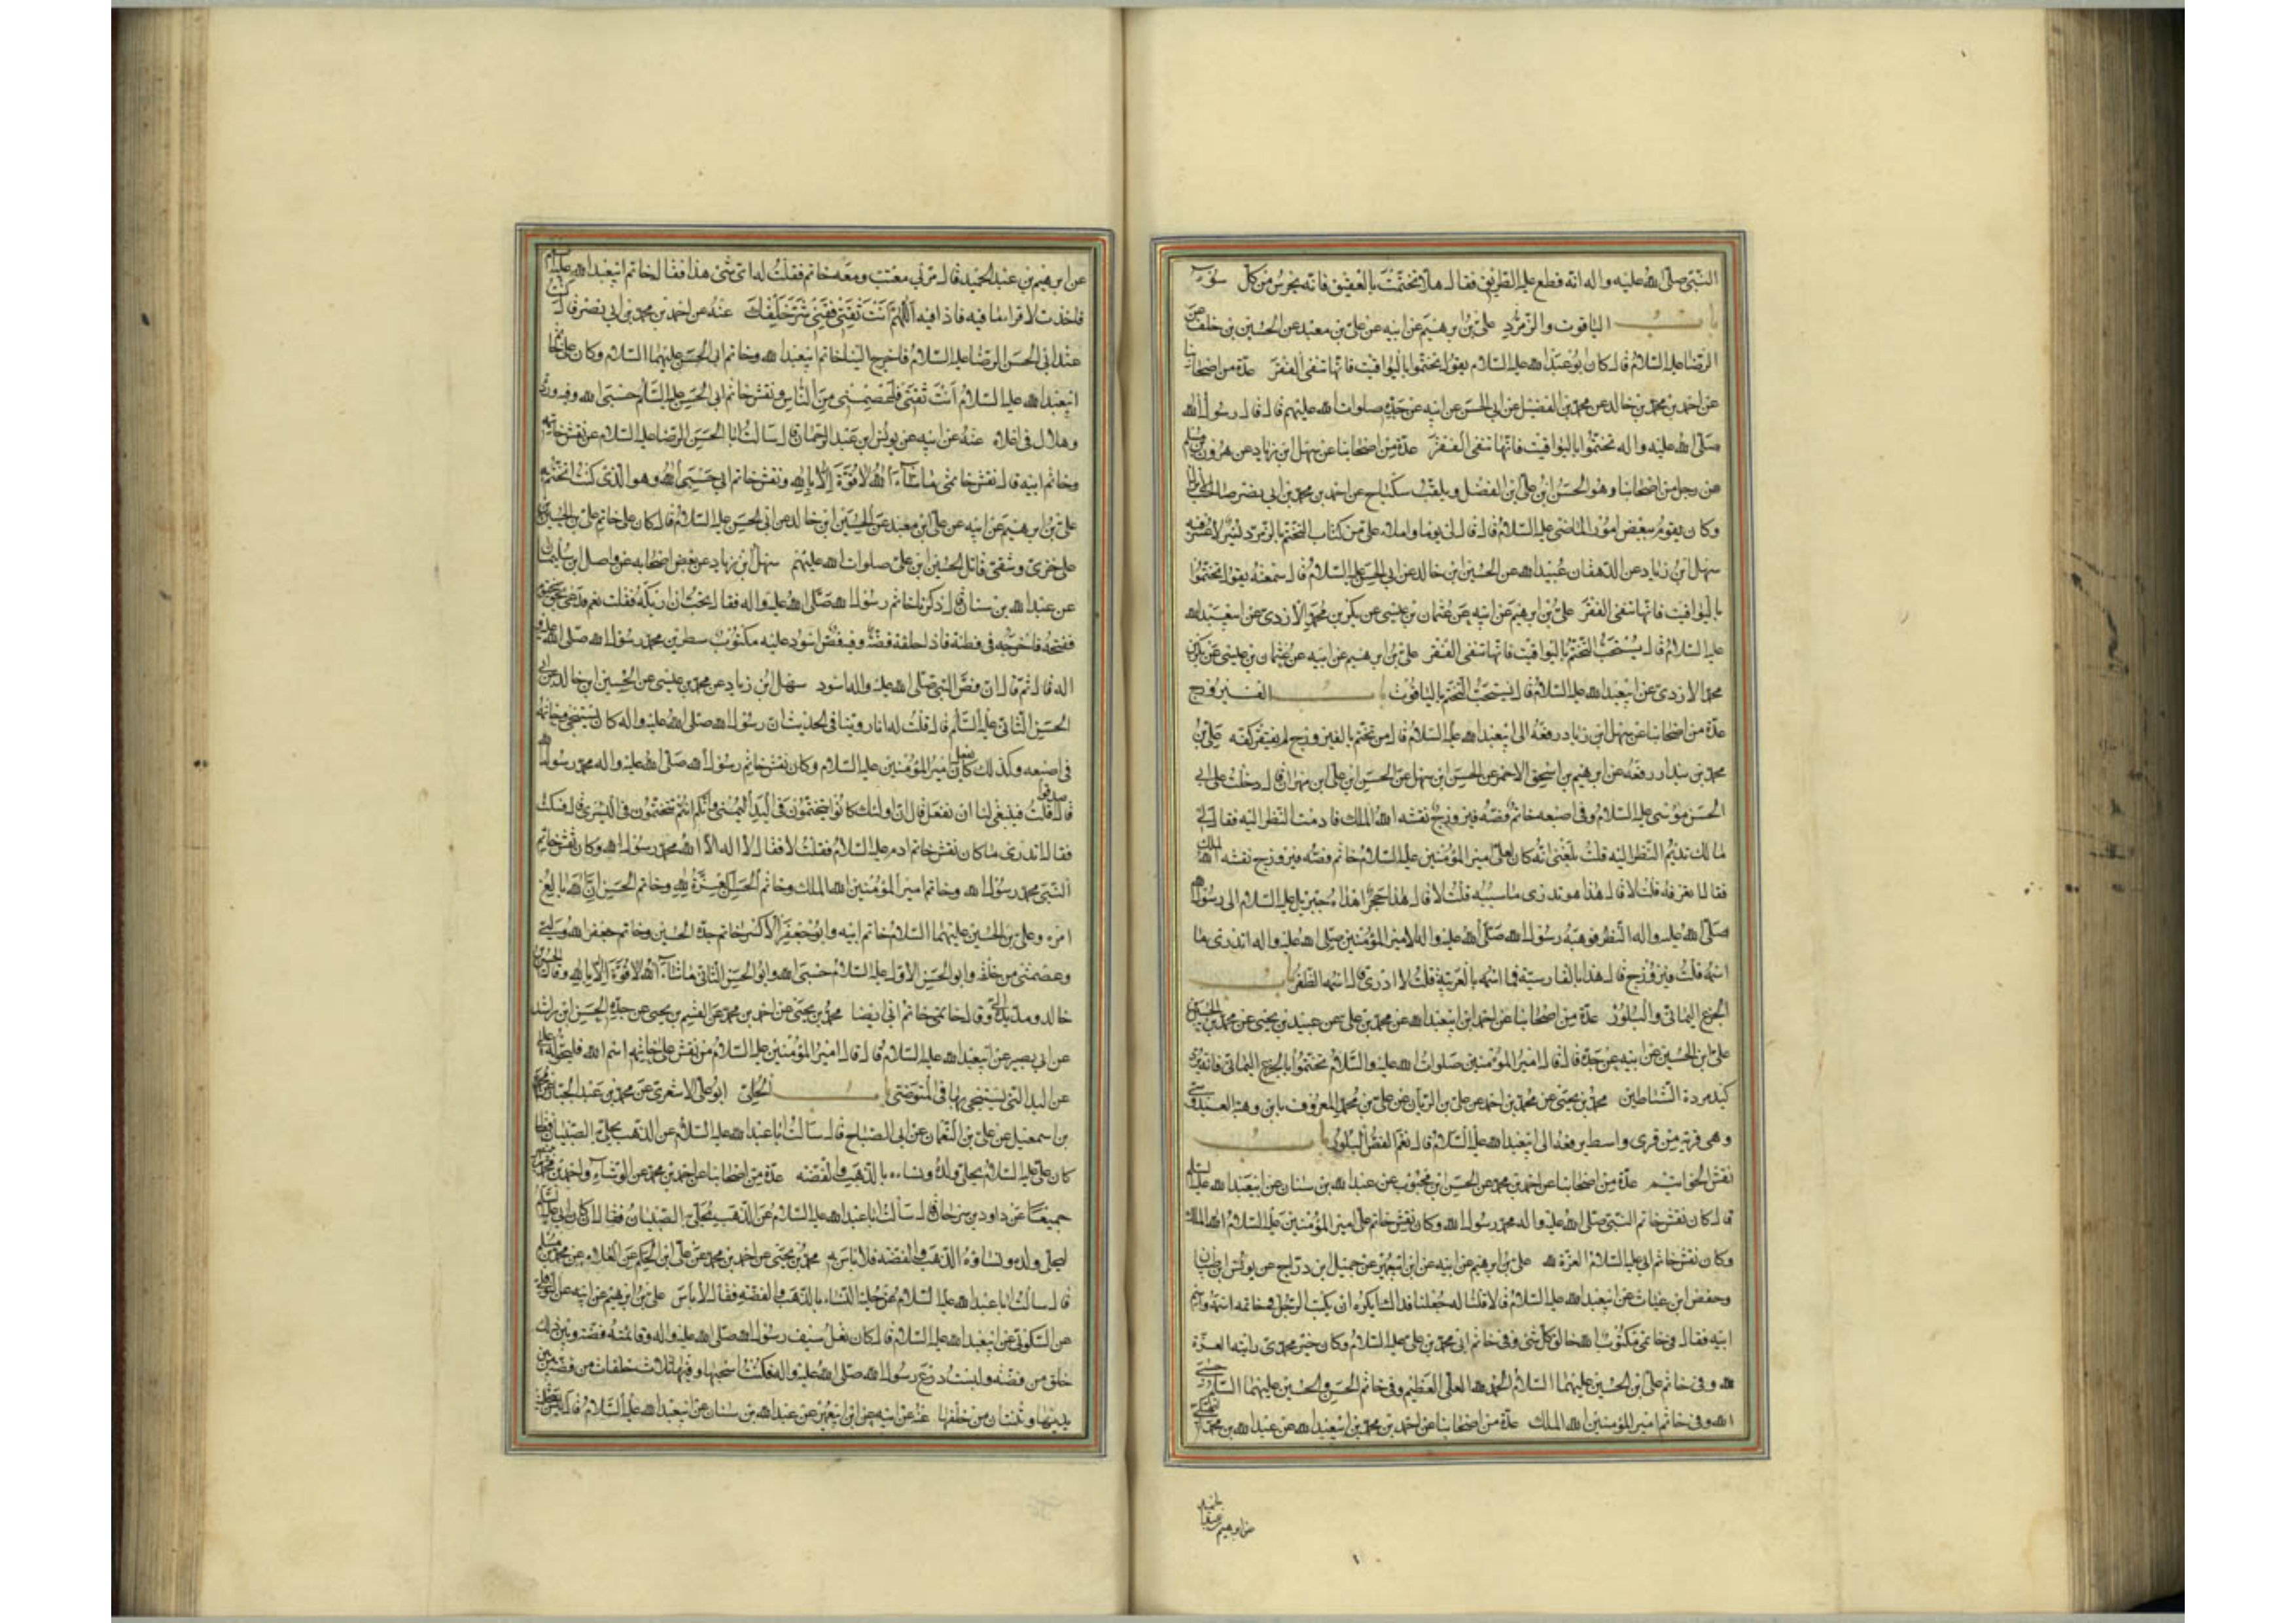 النبى صلى الله عليه واله انه قطع عليه الطريق فقال هلا تختمت بالعقيق فانه يحرس من كل سوء
باب الياقوت والزمرد على بن ابرهيم عن ابيه عن على بن معبد عن الحسين بن خلف عن
الرضا عليه السلام قال كان ابو عبد الله عليه السلام يقول تختموا باليواقيت فانها تنفى الفقر عدة من اصحابنا
عن احمد بن محمد بن خالد عن محمد بن الفضيل عن ابى الحسن عن ابيه عن جده صلوات الله عليهم قال قال رسول الله
صلى الله عليه واله تختموا باليواقيت فانها تنفى الفقر عدة من اصحابنا عن سهل بن زياد عن هرون بن مسلم
عن رجل من اصحابنا وهو الحسن بن على بن الفضل ويلقب سكباج عن احمد بن محمد بن ابى نصر صاحب الانزال
وكان يقوم ببعض امور الماضى عليه السلام قال قال لى يوما واملاه على من كتاب التختم بالزمرد يسر لا عسر فيه
سهل بن زياد عن الدهقان عبيد الله عن الحسين ابن خالد عن ابى الحسن عليه السلام قال سمعته يقول تختموا
باليواقيت فانها تنفى الفقر على بن ابرهيم عن ابيه عن عثمان بن عيسى عن بكر بن محمد الازدى عن ابيعبد الله
عليه السلام قال يستحب التختم باليواقيت فانها تنفى الفقر على بن ابرهيم عن ابيه عن عثمان بن عيسى عن بكر بن
محمد الازدى عن ابيعبد الله عليه السلام قال يستحب التختم بالياقوت باب الفيروزج
عدة من اصحابنا عن سهل ابن زياد رفعه الى ابيعبد الله عليه السلام قال من تختم بالفيروزج لم يفتقر كفه على بن
محمد بن بندار رفعه عن ابرهيم بن اسحق الاحمر عن الحسن ابن سهل عن الحسن ابن على ابن مهران قال دخلت على ابى
الحسن موسى عليه السلام وفى اصبعه خاتم فصه فيروزج نقشه الله الملك فادمت النظر اليه فقال لى
مالك تديم النظر اليه قلت بلغنى انه كان لعلى امير المؤمنين عليه السلام خاتم فصه فيروزج نقشه الله الملك
فقال اتعرفه قلت لا قال هذا هو تدرى ما سببه قلت لا قال هذا حجر اهداه جبرئيل عليه السلام الى رسول الله
صلى الله عليه واله فوهبه رسول الله صلى الله عليه واله لامير المؤمنين صلى الله عليه واله اتدرى ما
اسمه قلت فيروزج قال هذا بالفارسية فما اسمه بالعربية قلت لا ادرى قال اسمه الظفر باب
الجزع اليمانى والبلور عدة من اصحابنا عن احمد ابن ابيعبد الله عن محمد بن على عن عبيد بن يحيى عن محمد بن الحسين بن
على ابن الحسين عن ابيه عن جده قال قال امير المؤمنين صلوات الله عليه والسلام تختموا بالجزع اليمانى فانه يرد
كيد مردة الشياطين محمد بن يحيى عن محمد بن احمد عن على بن الريان عن على بن محمد المعروف بابن وهبة العبدسى
وهى قرية من قرى واسط يرفعه الى ابيعبد الله عليه السلام قال نعم الفص البلور باب
نقش الخواتيم عدة من اصحابنا عن احمد بن محمد عن الحسن ابن محبوب عن عبد الله بن سنان عن ابيعبد الله عليه السلام
قال كان نقش خاتم النبى صلى الله عليه واله محمد رسول الله وكان نقش خاتم على امير المؤمنين عليه السلام الله الملك
وكان نقش خاتم ابى عليه السلام العزة لله على بن ابرهيم عن ابيه عن ابن ابيعمير عن جميل ابن دراج عن يونس ابن ظبيان
وحفص ابن غياث عن ابيعبد الله عليه السلام قالا قلنا له جعلنا فداك ايكره ان يكتب الرجل فى خاتمه اسمه واسم
ابيه فقال فى خاتمى مكتوب الله خالق كل شئ وفى خاتم ابى محمد بن على عليه السلام وكان خير محمدى رايته العزة
لله وفى خاتم على بن الحسين عليهما السلام الحمد لله العلى العظيم وفى خاتم الحسن والحسين عليهما السلام حسبى
الله وفى خاتم امير المؤمنين الله الملك عدة من اصحابنا عن احمد بن محمد بن ابيعبد الله عن عبد الله بن محمد
عن ابرهيم
عن ابرهيم بن عبد الحميد قال مر بى معتب ومعه خاتم فقلت له اى شئ هذا فقال خاتم ابيعبد الله عليه السلام
فاخذت لاقرا ما فيه فاذا فيه اللهم انت ثقتى فقنى شر خلقك عنه عن احمد بن محمد بن ابى نصر قال كنت
عند ابى الحسن الرضا عليه السلام فاخرج الينا خاتم ابيعبد الله وخاتم ابى الحسن عليهما السلام وكان على خاتم
ابيعبد الله عليه السلام انت ثقتى فاعصمنى من الناس ونقش خاتم ابى الحسن عليه السلام حسبى الله وفيه وردة
وهلال فى اعلاه عنه عن ابيه عن يونس ابن عبد الرحمان قال سالت ابا الحسن الرضا عليه السلام عن نقش خاتمه
وخاتم ابيه قال نقش خاتمى ما شاء الله لا قوة الا بالله ونقش خاتم ابى حسبى الله وهو الذى كنت اتختم به
على بن ابرهيم عن ابيه عن على ابن معبد عن الحسين ابن خالد عن ابى الحسن عليه السلام قال كان على خاتم على بن الحسين
خزى وشقى قاتل الحسين ابن على صلوات الله عليهم سهل ابن زياد عن بعض اصحابه عن واصل ابن سليمان
عن عبد الله بن سنان قال ذكرنا خاتم رسول الله صلى الله عليه واله فقال تحب ان اريكه فقلت نعم فدعى بحق مختوم
ففتحه فاخرجه فى قطنة فاذا حلقة فضة وفيه فص اسود عليه مكتوب سطرين محمد رسول الله صلى الله عليه و
اله قال ثم قال ان فص النبى صلى الله عليه واله اسود سهل ابن زياد عن محمد بن عيسى عن الحسين ابن خالد عن ابى
الحسن الثانى عليه السلم قال قلت له انا روينا فى الحديث ان رسول الله صلى الله عليه واله كان يستنجى وخاتمه
فى اصبعه وكذلك كان يفعل امير المؤمنين عليه السلام وكان نقش خاتم رسول الله صلى الله عليه واله محمد رسول الله
قال صدقوا قلت فينبغى لنا ان نفعل قال ان اولئك كانوا يتختمون فى اليد اليمنى وانكم انتم تتختمون فى اليسرى قال فسكت
فقال اتدرى ما كان نقش خاتم ادم عليه السلام فقلت لا فقال لا اله الا الله محمد رسول الله وكان نقش خاتم
النبى محمد رسول الله وخاتم امير المؤمنين الله الملك وخاتم الحسن العزة لله وخاتم الحسين ان الله بالغ
امره وعلى بن الحسين عليهما السلام خاتم ابيه وابو جعفر الاكبر خاتم جده الحسين وخاتم جعفر الله وليى
وعصمتى من خلقه وابو الحسن الاول عليه السلام حسبى الله وابو الحسن الثانى ما شاء الله لا قوة الا بالله وقال الحسين بن
خالد ومد يده الى وقال خاتمى خاتم ابى ايضا محمد بن يحيى عن احمد بن محمد عن القسم بن يحيى عن جده الحسن ابن راشد
عن ابى بصير عن ابيعبد الله عليه السلام قال قال امير المؤمنين عليه السلام من نقش على خاتمه اسم الله فليحوله
عن اليد التى يستنجى بها فى المتوضى باب الحلى ابو على الاشعرى عن محمد بن عبد الجبار عن محمد
بن اسمعيل عن على بن النعمان عن ابى الصباح قال سالت ابا عبد الله عليه السلام عن الذهب يحلى به الصبيان فقال
كان على عليه السلام يحلى ولده ونساءه بالذهب والفضة عدة من اصحابنا عن احمد بن محمد عن الوشاء واحمد بن محمد
جميعا عن داود بن سرحان قال سالت ابا عبد الله عليه السلام عن الذهب يحلى به الصبيان فقال كان ابى عليه السلام
ليحلى ولده ونساؤه الذهب والفضة فلا باس به محمد بن يحيى عن احمد بن محمد عن على ابن الحكم عن العلاء عن محمد بن مسلم
قال سالت ابا عبد الله عليه السلام عن حلية النساء بالذهب والفضة فقال لا باس على بن ابرهيم عن ابيه عن النوفلى
عن السكونى عن ابيعبد الله عليه السلام قال كان نعل سيف رسول الله صلى الله عليه واله وقائمته فضة وبين ذلك
حلق من فضة ولبست درع رسول الله صلى الله عليه واله فكنت اسحبها وفيها ثلاث حلقات من فضة من بين
يديها وثنتان من خلفها عنه عن ابيه عن ابن ابيعمير عن عبد الله بن سنان عن ابيعبد الله عليه السلام قال ليس